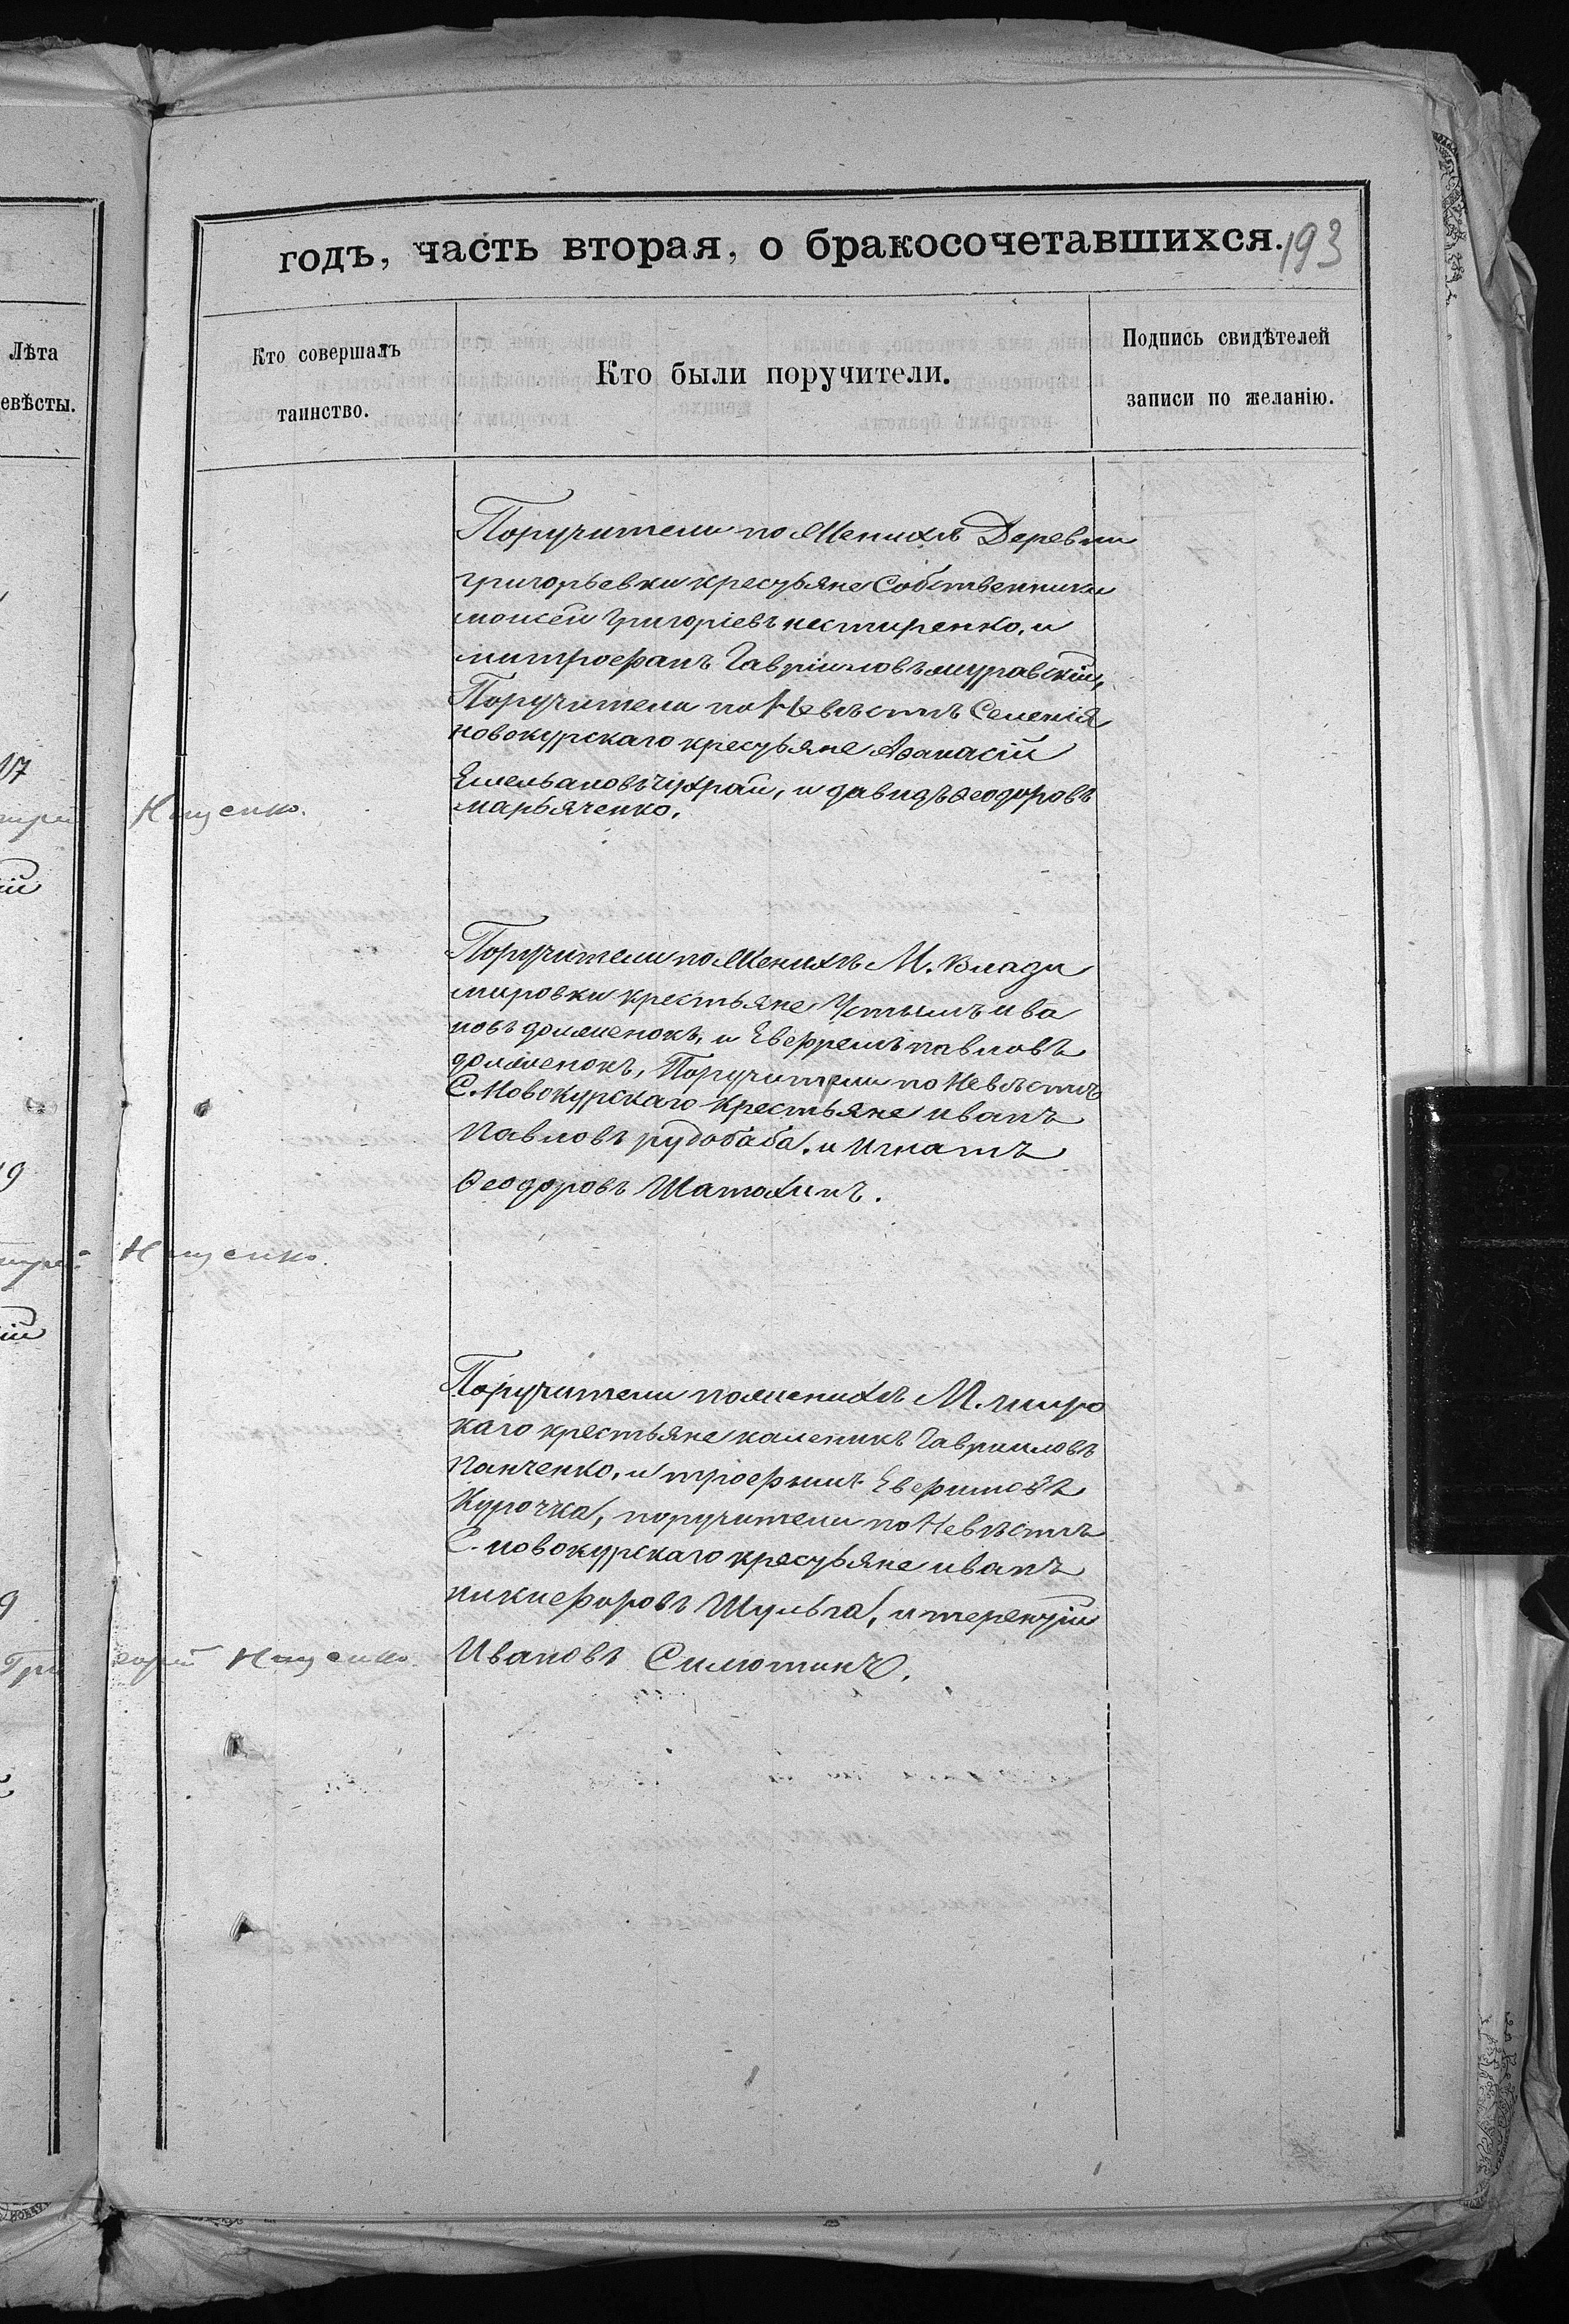 годъ, часть вторая, о бракосочетавшихся. 193
Лѣта
евѣсты.
Кто совершалъ
таинство.
Кто были поручители.
Подпись свидѣтелей
записи по желанію.
Поручители по Женихѣ Деревни
григорьевки кресцьяне Собственники
моисей григоріевъ нестиренко, и
митрофанъ Гавріиловъ муравскій,
Поручители по Невѣстѣ Селенія
новокурскаго кресцьяне Аѳанасій
Емельановъ чухрай, и давидъ ѳеодоровъ
марьяченко.
17
Нищенко.
ій
Поручители по Женихѣ М. Влади
мировки крестьяне Устымъ ива
новъ доляненокъ, и Евфремъ павловъ
доляненокъ, Поручители по Невѣстѣ
С. Новокурскаго крестьяне иванъ
Павловъ рудобаба, и Игнатъ
Ѳеодоровъ Шатохинъ.
19
Нищенко.
ій
Поручители по женихѣ М. широ
каго крестьяне каленикъ Гавриловъ
Панченко, и трофимъ Евфимовъ
Курочка, поручители по Невѣстѣ
С. новокурскаго кресцьяне иванъ
никифоровъ Шульга, и терентій
Ивановъ Силютинъ.
9
Григорій Нищенко.